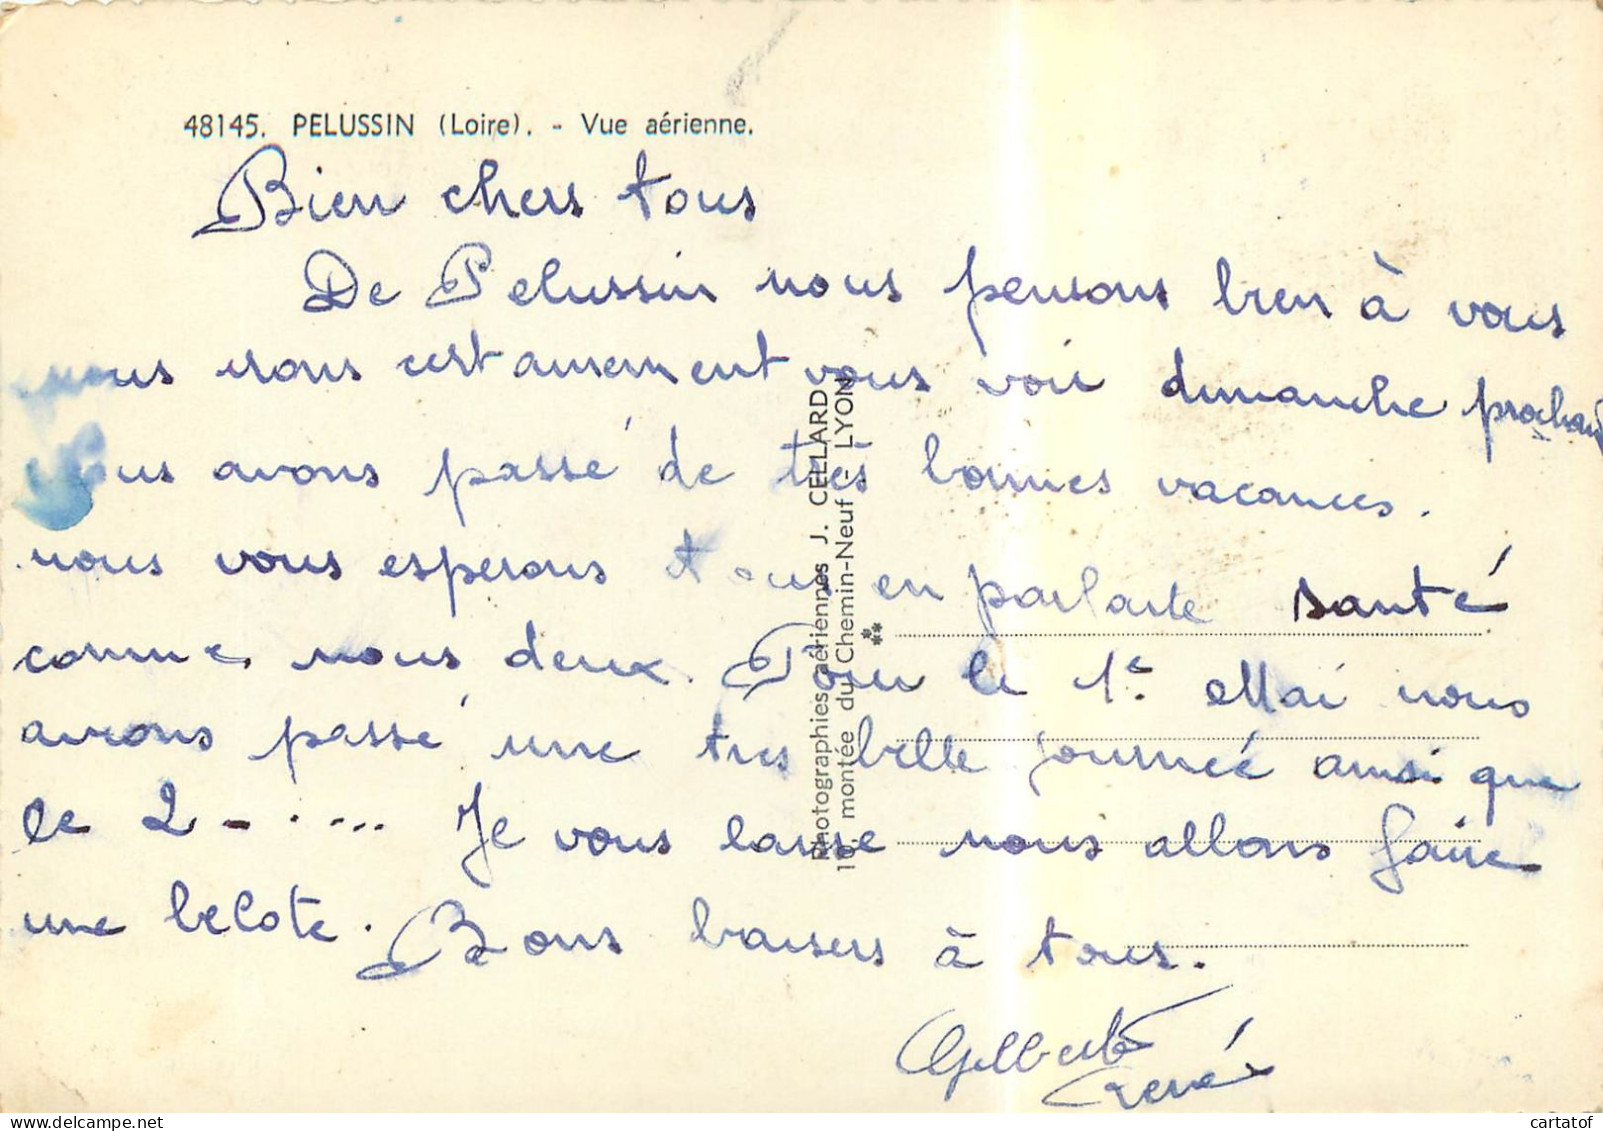 48145. PELUSSIN (Loire). - Vue aérienne.
Bien chers tous
De Pelussin nous pensons bien à vous
nous irons certainement vous voir dimanche prochain
nous avons passé de très bonnes vacances.
nous vous esperons tous en parfaite santé
comme nous deux. Pour le 1e. Mai nous
avons passé une tres belle journée ainsi que
le 2 - . ... Je vous laisse nous allons faire
une belote. Bons baisers à tous.
Gilberte
René
Photographies aériennes J. CELLARD
10, montée du Chemin-Neuf - LYON
cartatof